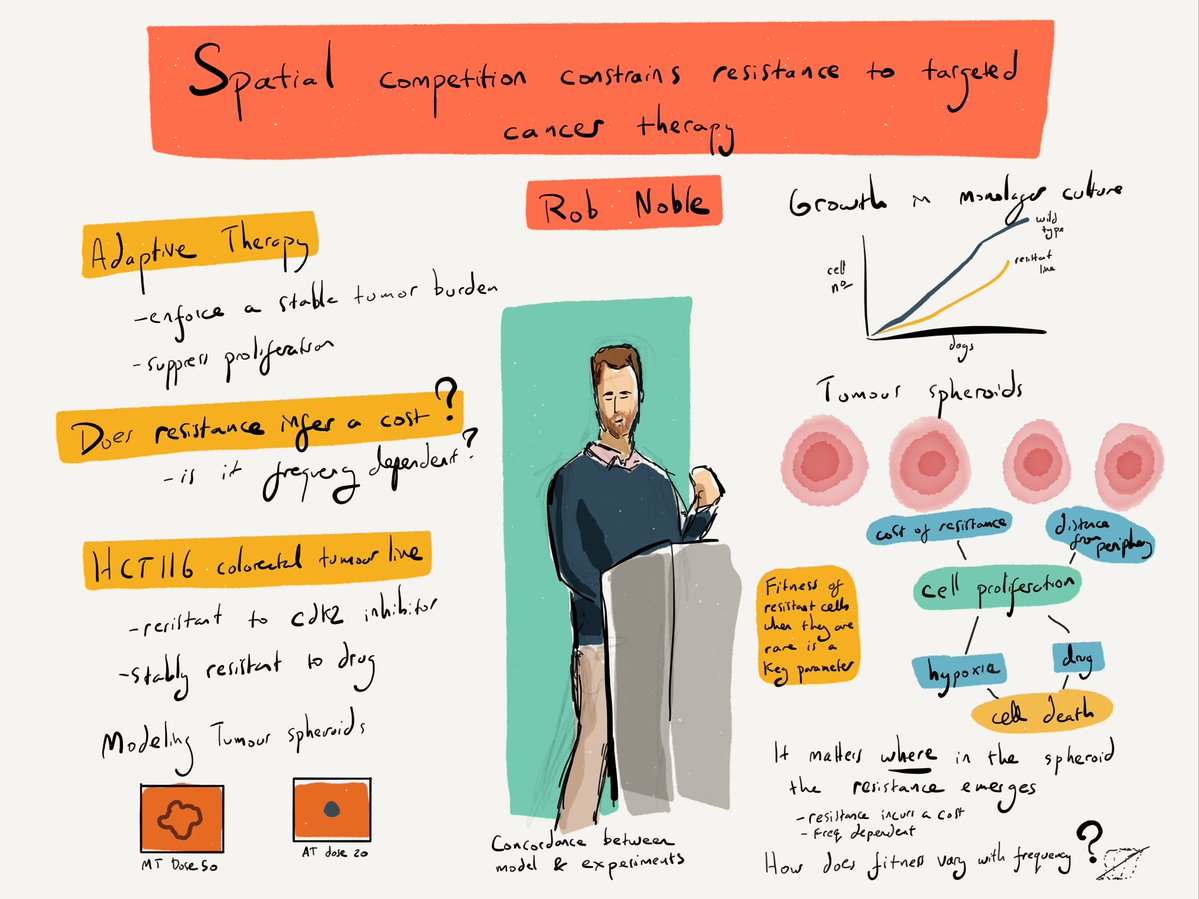 Spatial competition constrains resistance to targeted
cancer therapy
Rob Noble
Adaptive Therapy
-enforce a stable tumor burden
-suppress proliferation
Does resistance infer a cost?
-is it frequency dependent?
HCT116 colorectal tumour line
-resistant to cdk2 inhibitor
-stably resistant to drug
Modeling Tumour spheroids
MT Dose 50
AT dose 20
Concordance between
model & experiments
Growth in monolayer culture
cell
no
wild
type
resistant
line
days
Tumour spheroids
cost of resistance
distance
from periphery
cell proliferation
hypoxia
drug
cell death
Fitness of
resistant cells
when they are
rare is a
key parameter
It matters where in the spheroid
the resistance emerges
-resistance incurs a cost
-freq dependent
How does fitness vary with frequency?